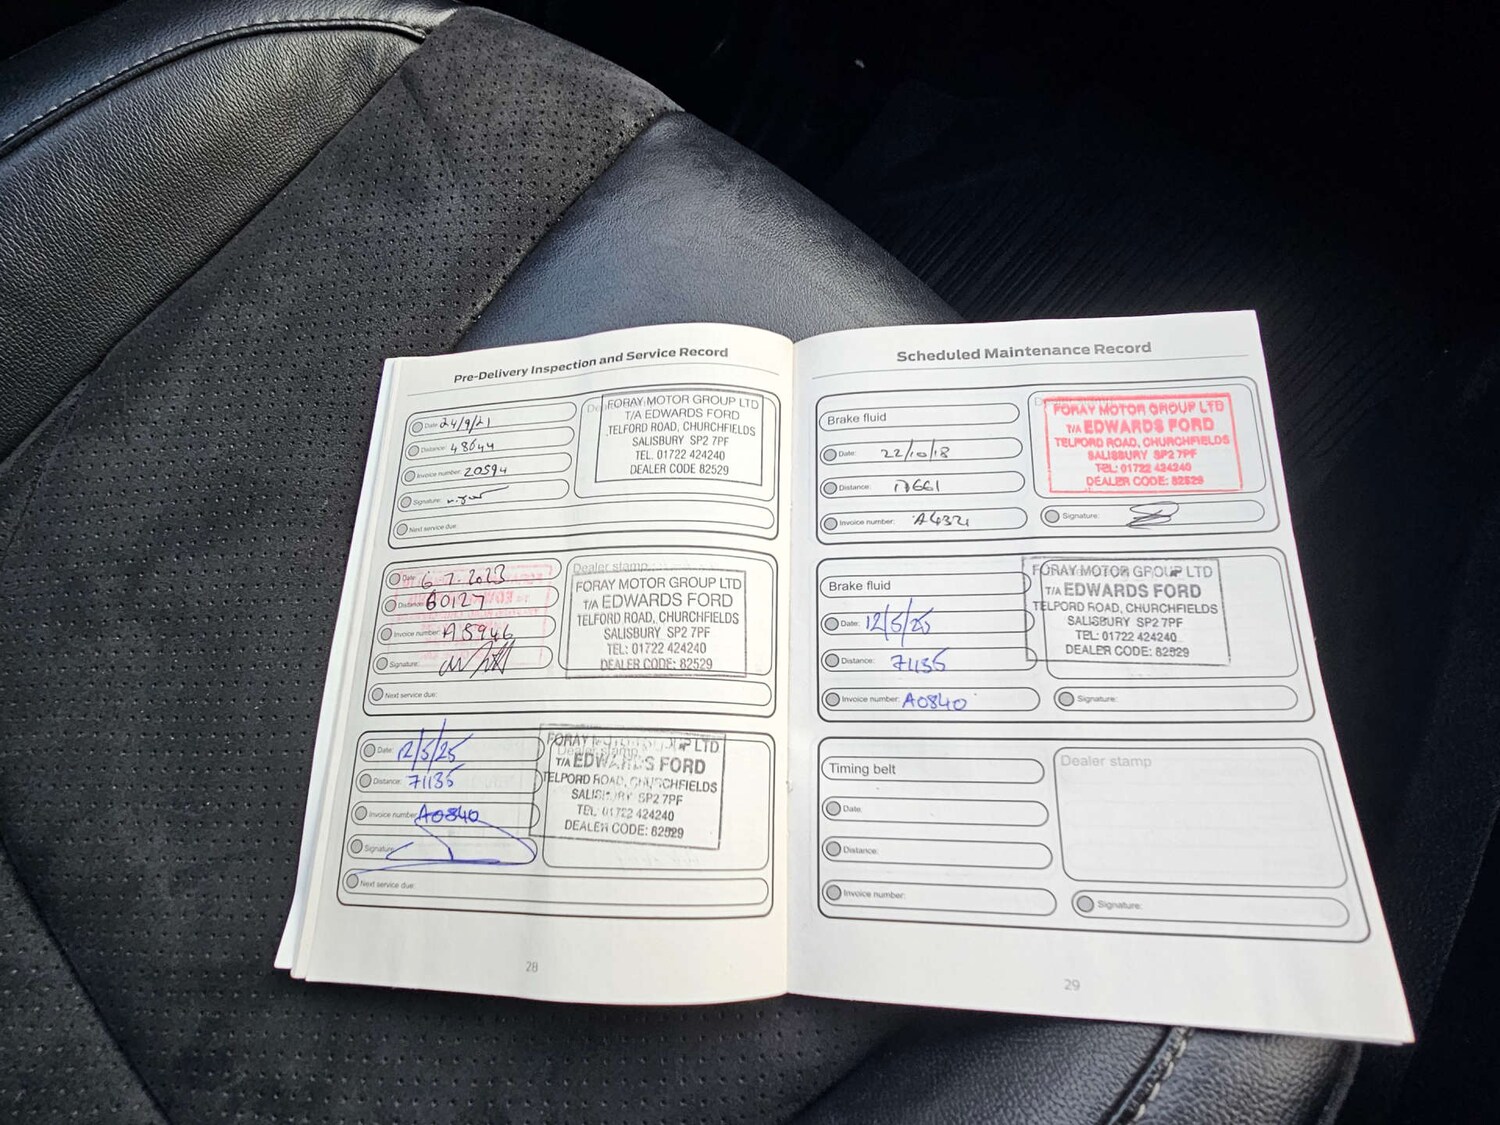 Pre-Delivery Inspection and Service Record
Date: 24/9/21
Distance: 48644
Invoice number: 20594
Signature:
Next service due:
FORAY MOTOR GROUP LTD
T/A EDWARDS FORD
TELFORD ROAD, CHURCHFIELDS
SALISBURY SP2 7PF
TEL. 01722 424240
DEALER CODE 82529
Date: 6.7.2023
Distance: 60127
Invoice number: A5946
Signature:
Next service due:
Dealer stamp
FORAY MOTOR GROUP LTD
T/A EDWARDS FORD
TELFORD ROAD, CHURCHFIELDS
SALISBURY SP2 7PF
TEL: 01722 424240
DEALER CODE: 82529
Date: 12/5/25
Distance: 71135
Invoice number: A0840
Signature:
Next service due:
Dealer stamp
FORAY MOTOR GROUP LTD
T/A EDWARDS FORD
TELFORD ROAD, CHURCHFIELDS
SALISBURY SP2 7PF
TEL: 01722 424240
DEALER CODE: 82529
28
Scheduled Maintenance Record
Brake fluid
Date: 22/10/18
Distance: 17661
Invoice number: A4321
FORAY MOTOR GROUP LTD
T/A EDWARDS FORD
TELFORD ROAD, CHURCHFIELDS
SALISBURY SP2 7PF
TEL: 01722 424240
DEALER CODE: 82529
Signature:
Brake fluid
Date: 12/5/25
Distance: 71135
Invoice number: A0840
FORAY MOTOR GROUP LTD
T/A EDWARDS FORD
TELFORD ROAD, CHURCHFIELDS
SALISBURY SP2 7PF
TEL: 01722 424240
DEALER CODE: 82529
Signature:
Timing belt
Date:
Distance:
Invoice number:
Dealer stamp
Signature:
29